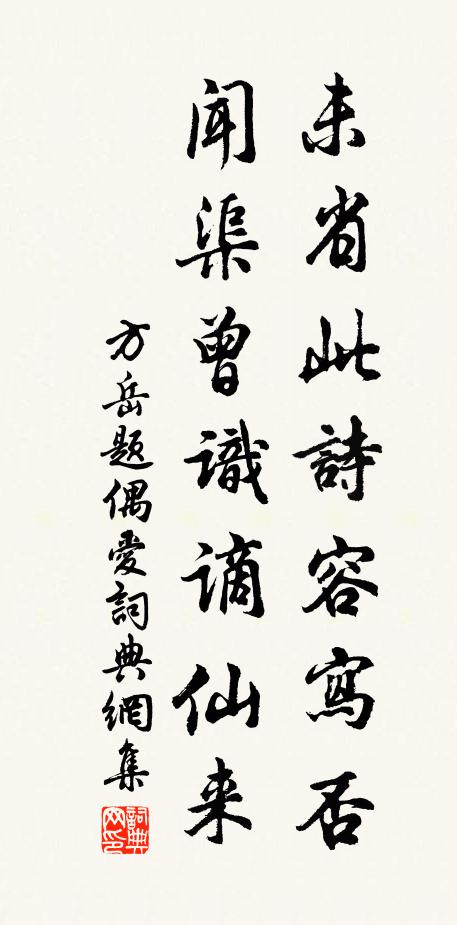 未省此詩容寫否
聞渠曾識謫仙来
方岳題偶愛詞典網集
詞典
网印